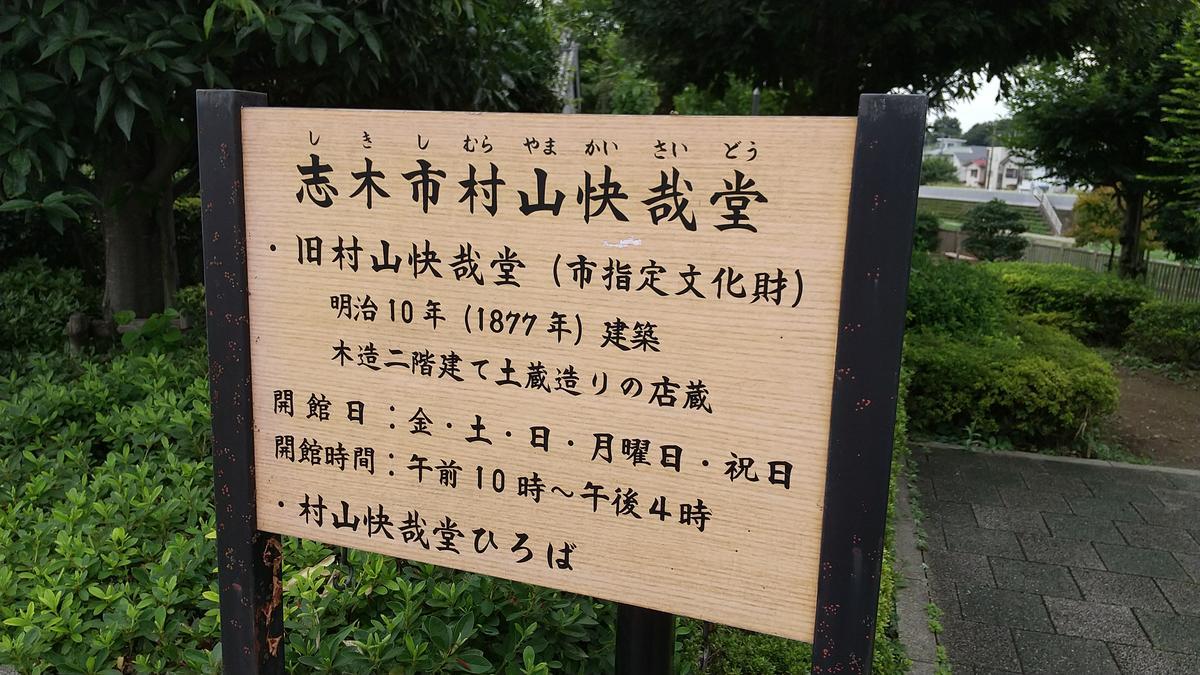 しきしむらやまかいさいどう
志木市村山快哉堂
・旧村山快哉堂(市指定文化財)
明治10年(1877年)建築
木造二階建て土蔵造りの店蔵
開館日:金・土・日・月曜日・祝日
開館時間:午前10時~午後4時
・村山快哉堂ひろば